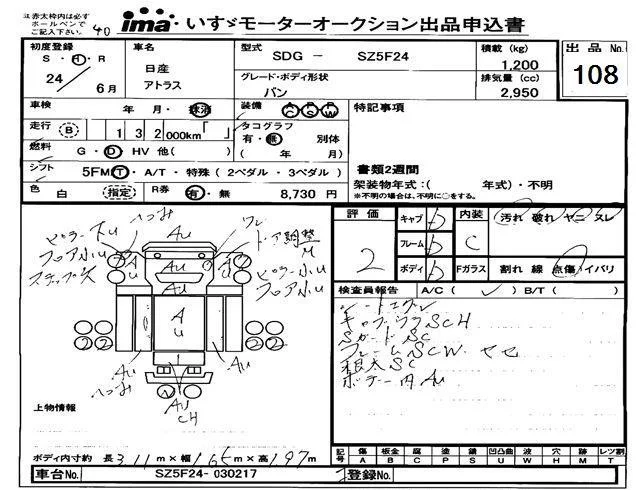 ima いすゞモーターオークション出品申込書
注 赤太枠内は必ず
ボールペンで
ご記入下さい。
40
初度登録
S・H・R
24 / 6月
車名
日産
アトラス
型式 SDG － SZ5F24
グレード・ボディ形状
バン
積載 (kg)
1,200
排気量 (cc)
2,950
出品No.
108
車検 年 月・抹消
装備 AC PS PW
特記事項
走行 B 132000km
タコグラフ
有・無 別体
( 年 月)
燃料 G・D HV 他( )
シフト 5FMT・A/T・特殊 (2ペダル・3ペダル)
書類2週間
架装物年式:( 年式)・不明
※不明の場合は、不明に○をする。
色 白 (指定) R券 有・無 8,730 円
評価
2
キャブ b
フレーム b
ボディ b
内装
C
Fガラス
汚れ 破れ ヤニ スレ
割れ 線 点傷 イバリ
検査員報告 A/C( ✓ ) B/T( )
キャブウラSCH
SガードSC
フレームSCW
根太SC
ボデー内AU
ヘコみ
ワレ
ドア調整
M
ピラー下U
フロア小U
ステップ穴
ピラー小U
フロア小U
AU
AU
AU
AU
AU
ヘコみ
AU
CH
2 2
2 2
上物情報
ボディ内寸約 長 3.11 m×幅 1.65 m×高 1.97 m
記号 傷 A 板金 B 腐 C 塗 P 錆 S 凹凸凸凹 U 波 W 穴 H 跡 M レツ割 T
車台No. SZ5F24- 030217
登録No.